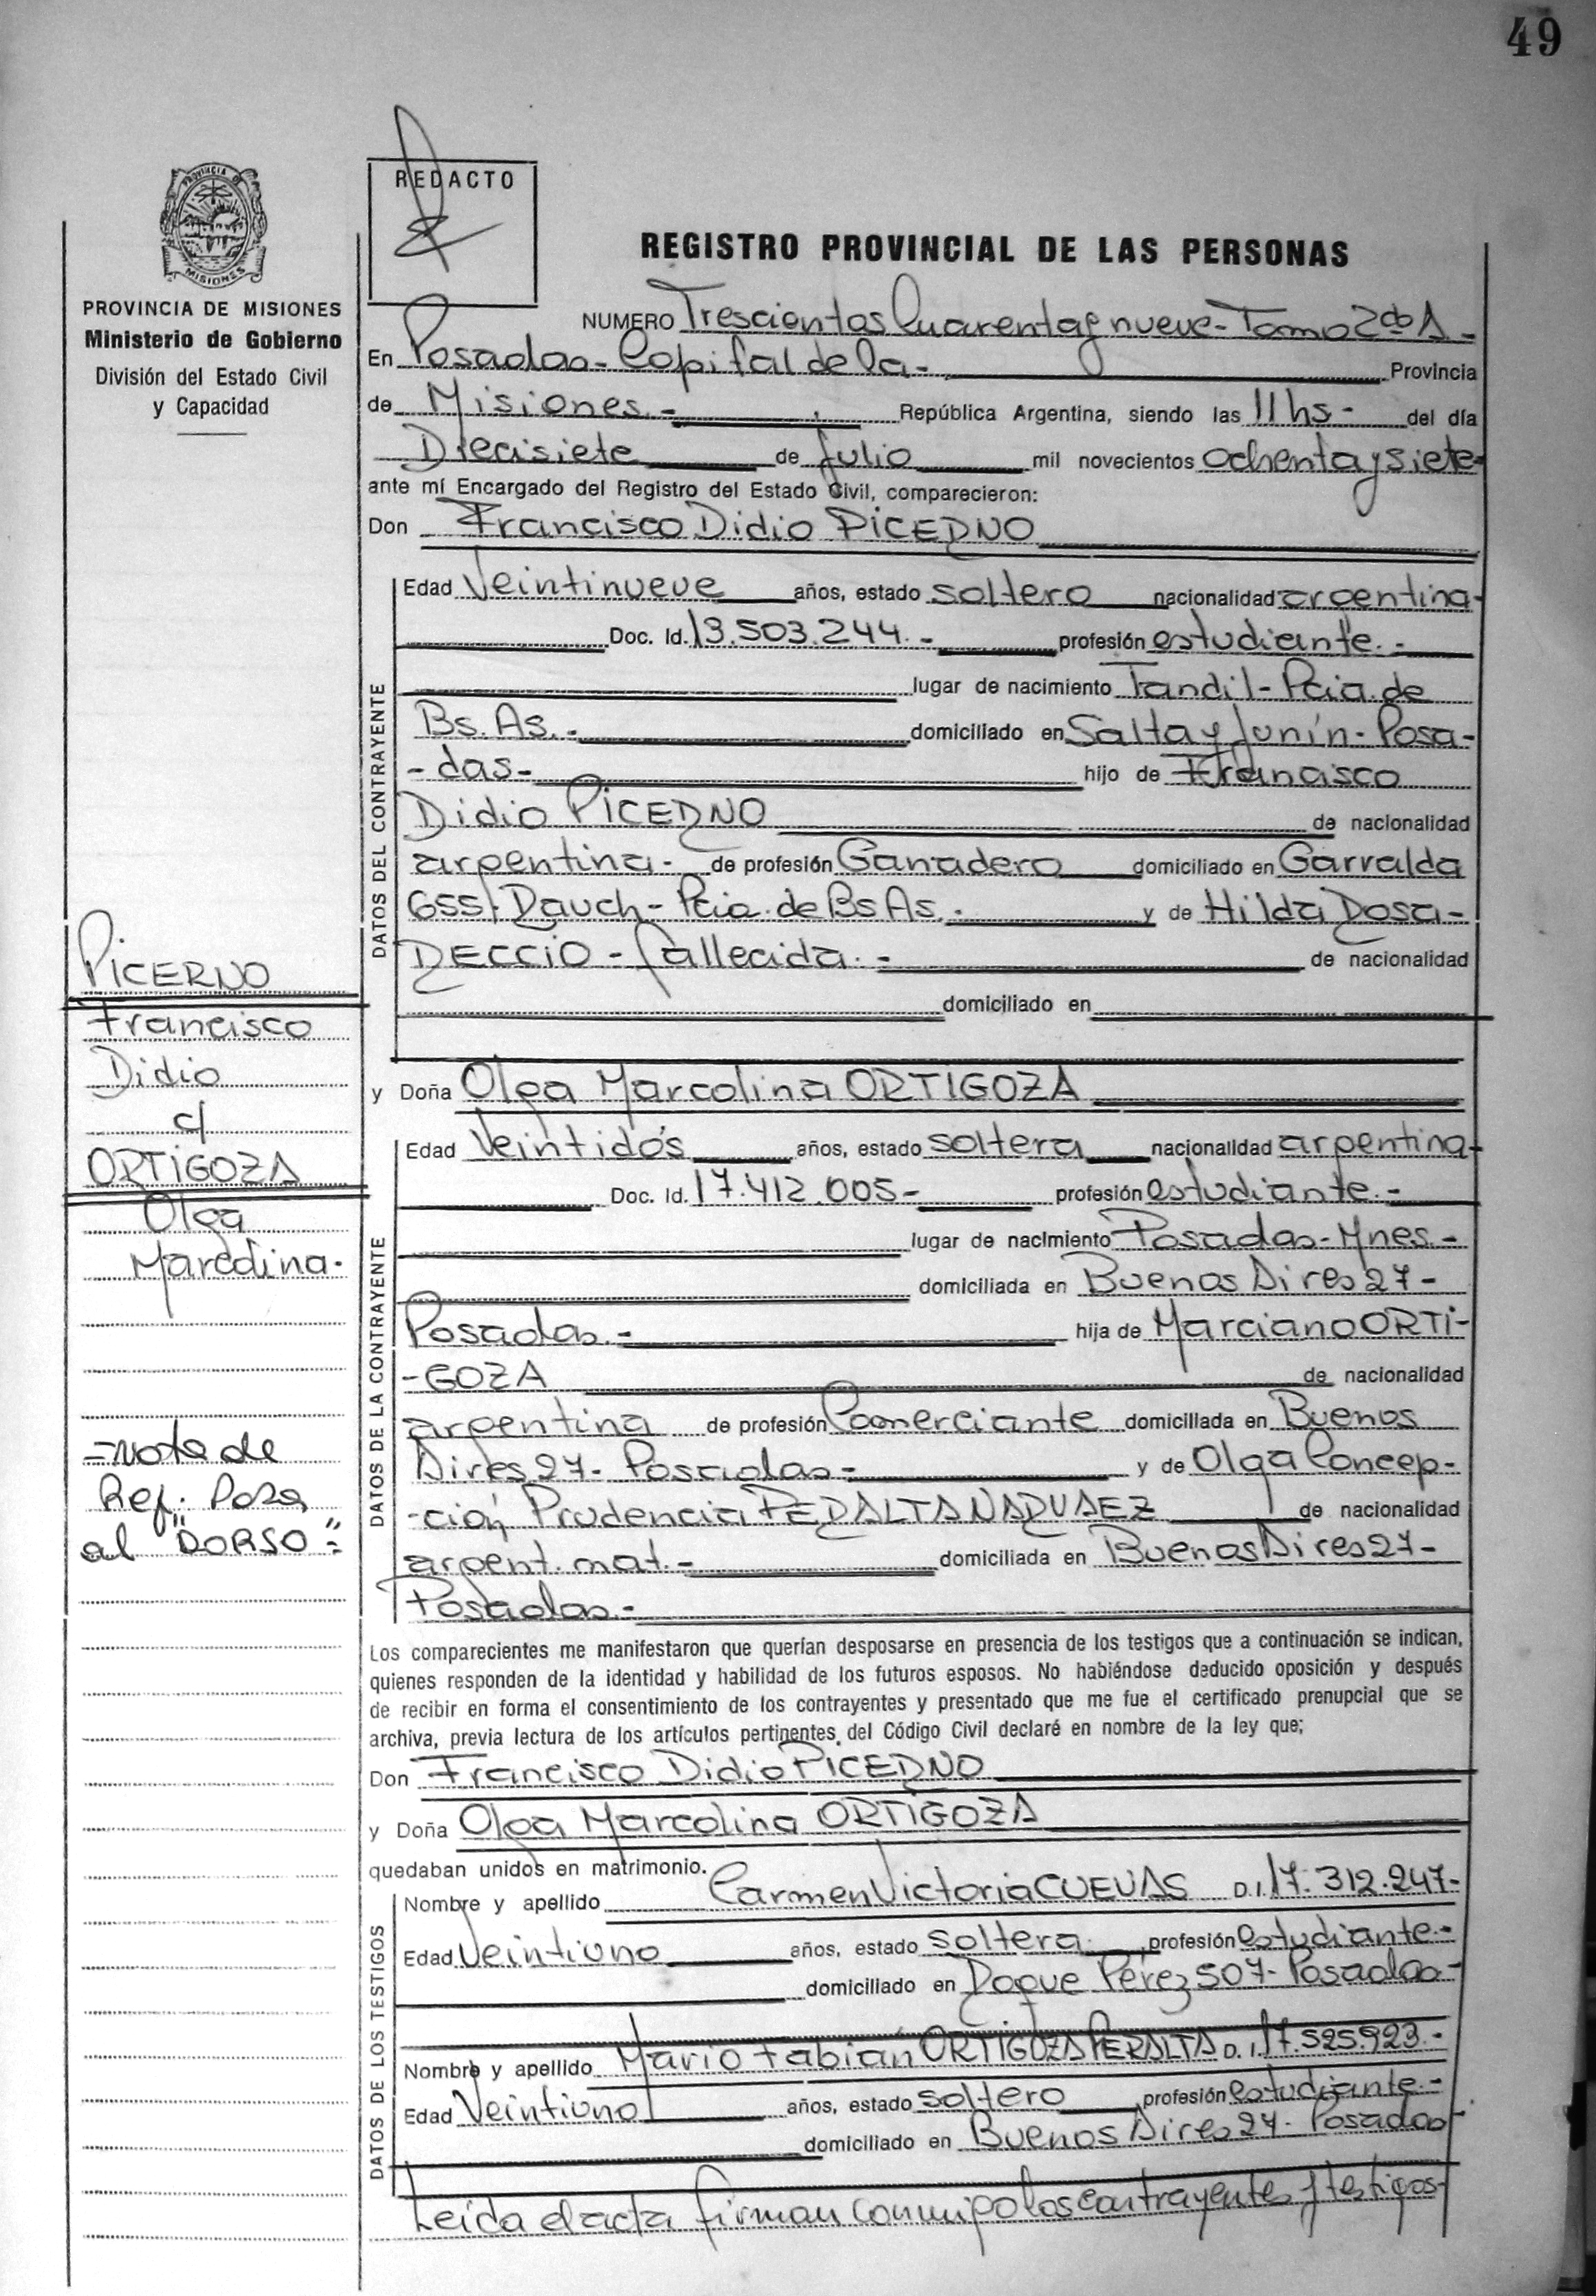 49
REDACTO
PROVINCIA DE
MISIONES
PROVINCIA DE MISIONES
Ministerio de Gobierno
División del Estado Civil
y Capacidad
REGISTRO PROVINCIAL DE LAS PERSONAS
NUMERO Trescientos Cuarenta y nueve - Tomo 2do A -
En Posadas - Capital de la - Provincia
de Misiones. - República Argentina, siendo las 11 hs - del día
Diecisiete de Julio mil novecientos ochenta y siete
ante mí Encargado del Registro del Estado Civil, comparecieron:
Don Francisco Didio PICERNO
DATOS DEL CONTRAYENTE
Edad Veintinueve años, estado soltero nacionalidad argentina -
Doc. Id. 13.503.244. - profesión estudiante. -
lugar de nacimiento Tandil - Pcia. de
Bs. As. - domiciliado en Salta y Junín - Posa-
- das - hijo de Francisco
Didio PICERNO de nacionalidad
argentina - de profesión Ganadero domiciliado en Garralda
655/ Rauch - Pcia. de Bs As. - y de Hilda Rosa -
RECCIO - fallecida. - de nacionalidad
domiciliado en
PICERNO
Francisco
Didio
c/
ORTIGOZA
Olga
Marcolina.
=Nota de
Ref. Pasa
al "DORSO"=
y Doña Olga Marcolina ORTIGOZA
DATOS DE LA CONTRAYENTE
Edad Veintidós años, estado soltera nacionalidad argentina -
Doc. Id. 17.412.005 - profesión estudiante. -
lugar de nacimiento Posadas - Mnes. -
domiciliada en Buenos Aires 27 -
Posadas. - hija de Marciano ORTI-
- GOZA de nacionalidad
argentina de profesión Comerciante domiciliada en Buenos
Aires 27 - Posadas - y de Olga Concep-
- ción Prudencia PERALTA NARVAEZ de nacionalidad
argent. nat. - domiciliada en Buenos Aires 27 -
Posadas. -
Los comparecientes me manifestaron que querían desposarse en presencia de los testigos que a continuación se indican,
quienes responden de la identidad y habilidad de los futuros esposos. No habiéndose deducido oposición y después
de recibir en forma el consentimiento de los contrayentes y presentado que me fue el certificado prenupcial que se
archiva, previa lectura de los artículos pertinentes del Código Civil declaré en nombre de la ley que;
Don Francisco Didio PICERNO
y Doña Olga Marcolina ORTIGOZA
quedaban unidos en matrimonio.
DATOS DE LOS TESTIGOS
Nombre y apellido Carmen Victoria CUEVAS D.I. 17.312.247 -
Edad Veintiuno años, estado soltera profesión estudiante. -
domiciliado en Roque Pérez 507 - Posadas -
Nombre y apellido Mario Fabián ORTIGOZA PERALTA D.I. 17.525.923. -
Edad Veintiuno años, estado soltero profesión estudiante. -
domiciliado en Buenos Aires 27 - Posadas
Leida el acta firman conmigo los contrayentes y testigos -